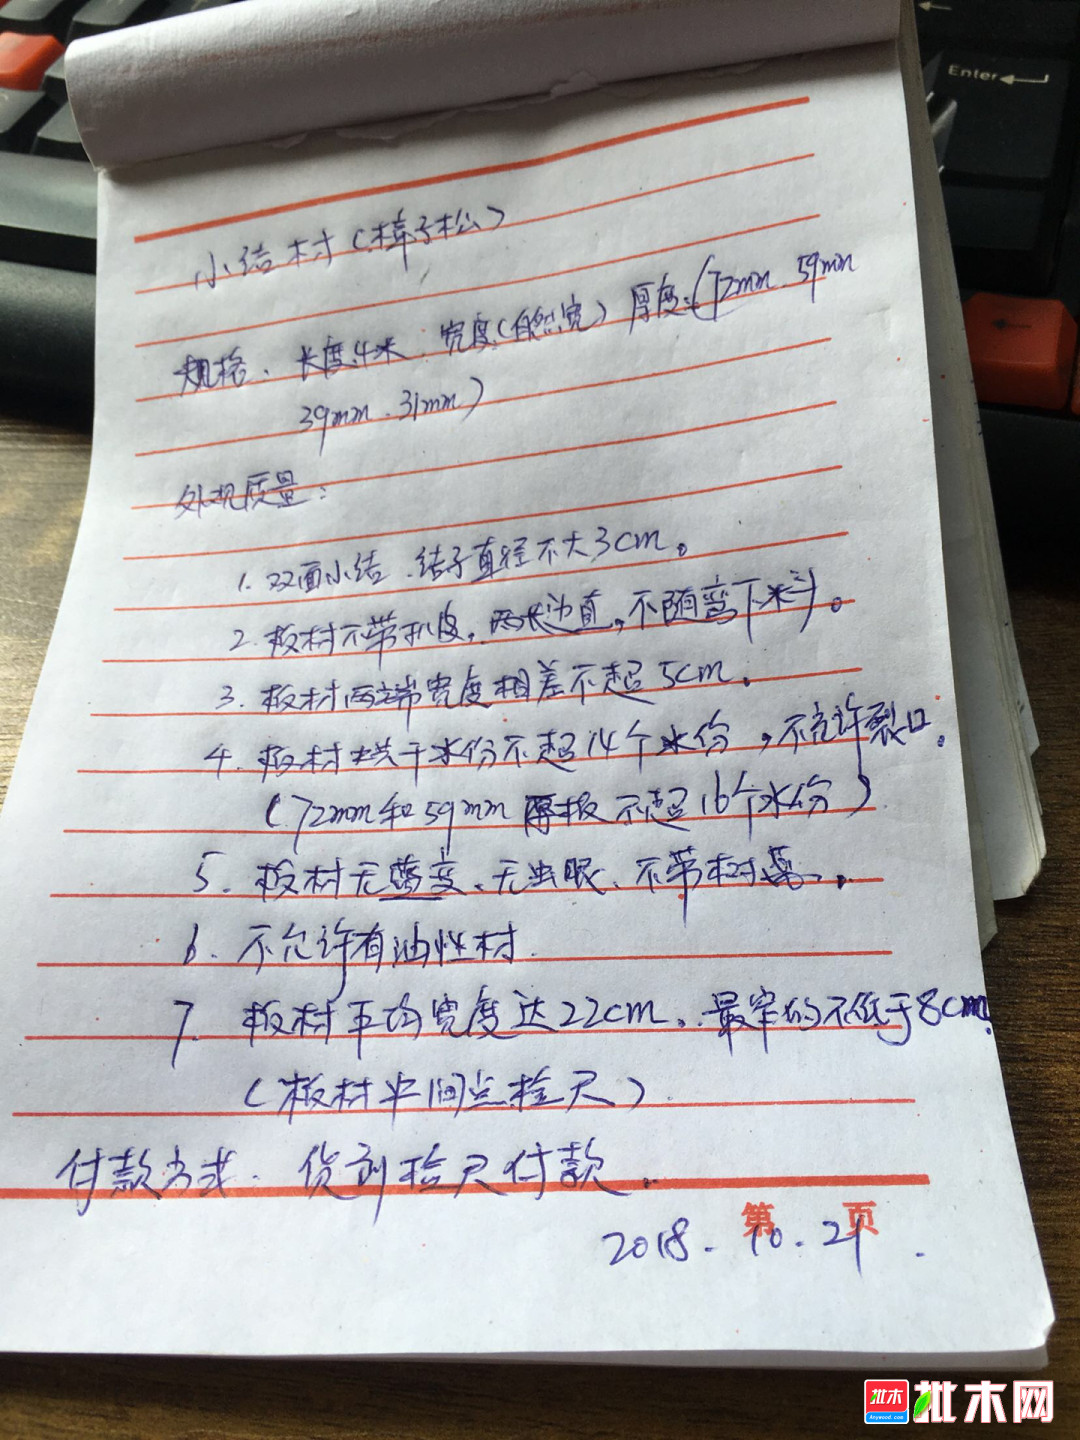 Enter
小结材(樟子松)
规格、长度4米、宽度(自然宽)厚度:(72mm、59mm
39mm、31mm)
外观质量:
1. 双面小结、结子直径不大3cm。
2. 板材不带扒皮,两长边直,不随弯下料。
3. 板材两端宽度相差不超5cm。
4. 板材烘干水份不超14个水份,不允许裂口。
(72mm和59mm厚板不超16个水份)
5. 板材无蓝变、无虫眼、不带树
6. 不允许有油性材.
7. 板材平均宽度达22cm,最窄的不低于8cm.
(板材中间点检尺)
付款方式:货到检尺付款。
第 页
2018.10.21.
批木 批木网
Anywood.com